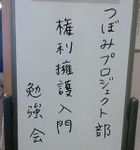 つぼみプロジェクト部
権利擁護入門
勉強会